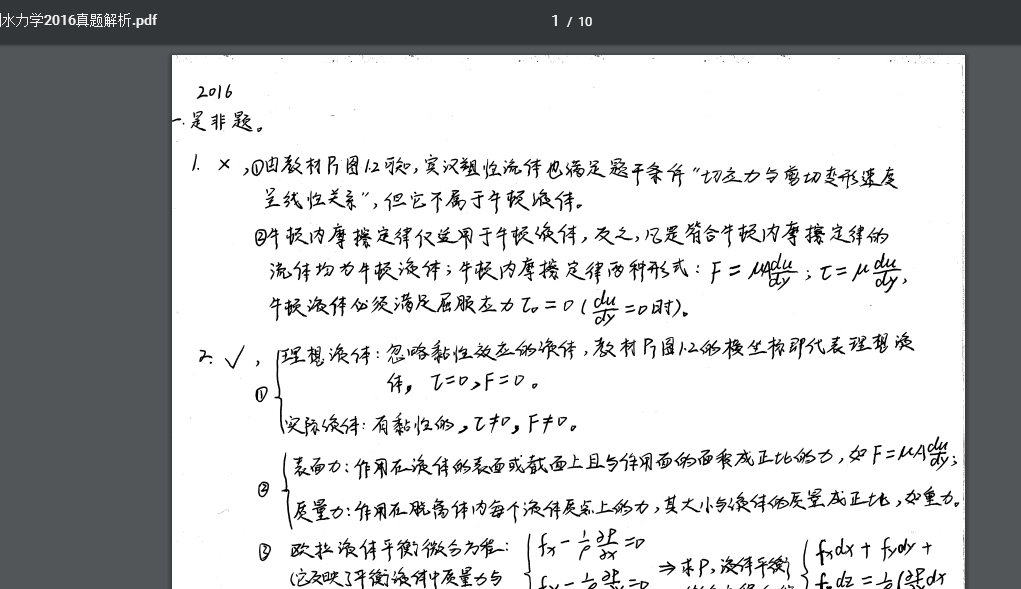 水力学2016真题解析.pdf
1 / 10
2016
一.是非题。
1. ×,①由教材P7图1.2可知,宾汉塑性流体也满足题干条件“切应力与剪切变形速度
呈线性关系”,但它不属于牛顿液体。
②牛顿内摩擦定律仅适用于牛顿液体,反之,凡是符合牛顿内摩擦定律的
流体均为牛顿液体;牛顿内摩擦定律两种形式:F=μA du/dy;τ=μ du/dy,
牛顿液体必须满足屈服应力τ₀=0(du/dy=0时)。
2. √,
① 理想液体:忽略黏性效应的液体,教材P7图1.2的横坐标即代表理想液
体,τ=0,F=0。
实际液体:有黏性的,τ≠0,F≠0。
② 表面力:作用在液体的表面或截面上且与作用面的面积成正比的力,如F=μA du/dy;
质量力:作用在脱离体内每个液体质点上的力,其大小与液体的质量成正比,如重力。
③ 欧拉液体平衡微分方程:
(它反映了平衡液体中质量力与
fx - 1/ρ ∂P/∂x = 0
fy - 1/ρ ∂P/∂y = 0
⇒求P,液体平衡
fxdx + fydy +
fzdz = 1/ρ(∂P/∂x dx